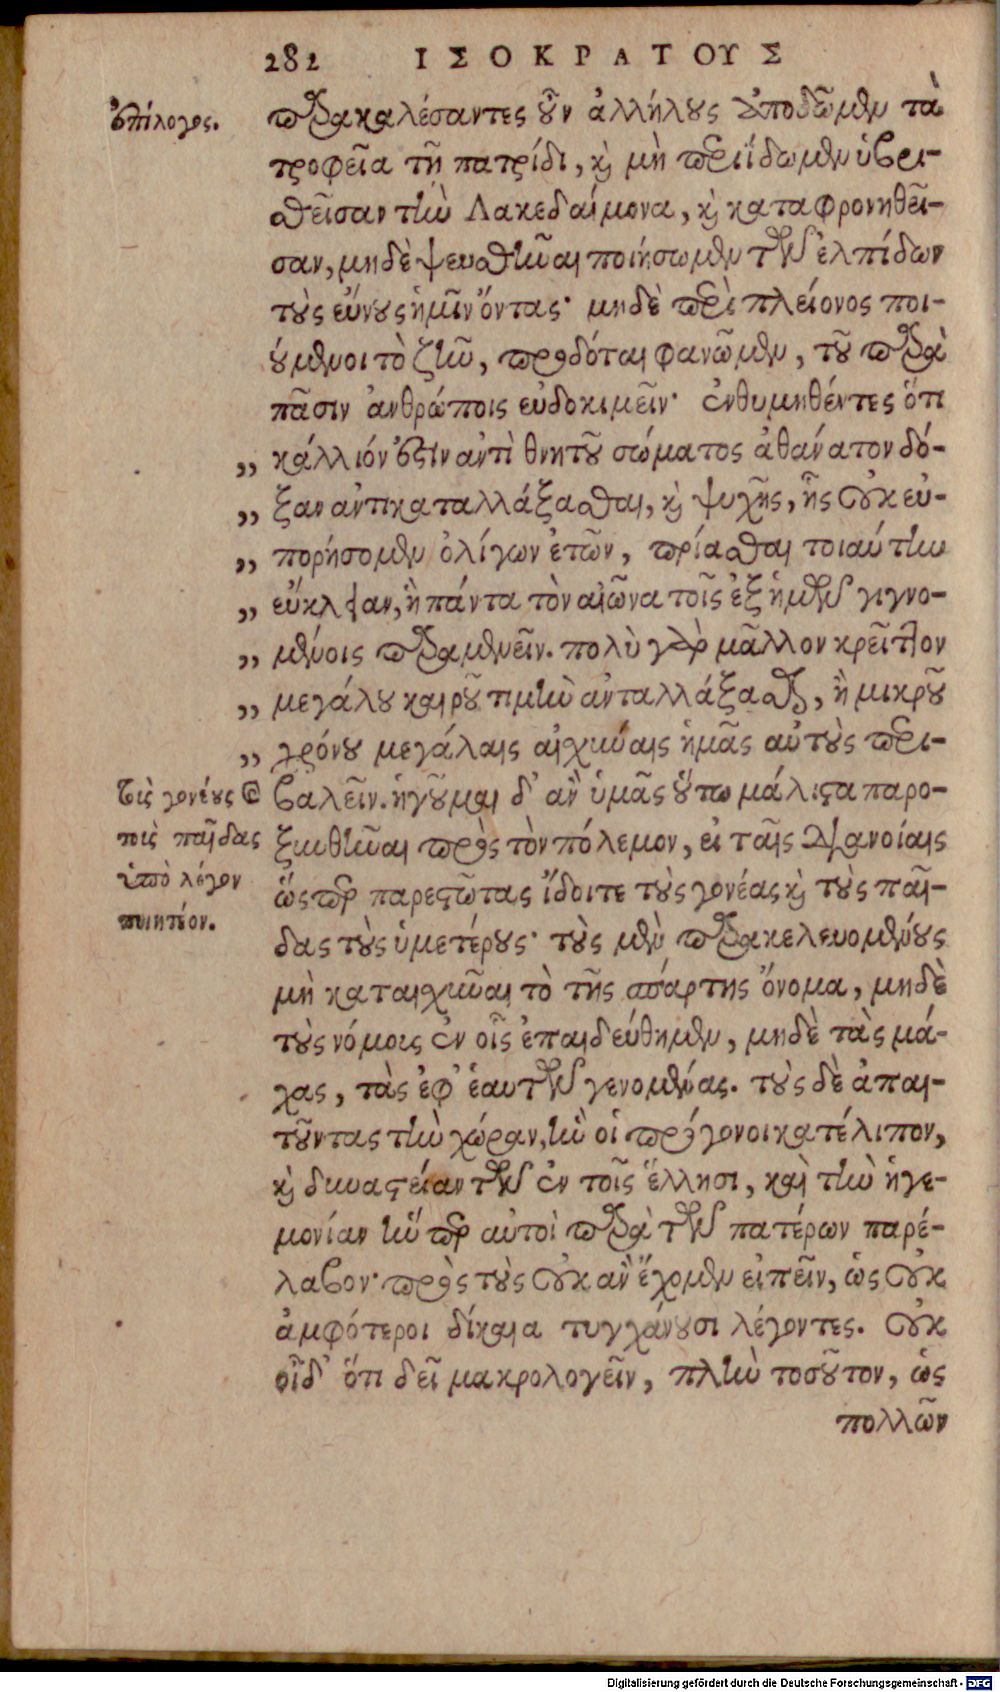 282 ΙΣΟΚΡΑΤΟΥΣ
ἐπίλογος.
παρακαλέσαντες οὖν ἀλλήλους ἀποδῶμεν τὰ
τροφεῖα τῇ πατρίδι, καὶ μὴ περιίδωμεν ὑβρι-
σθεῖσαν τὴν Λακεδαίμονα, καὶ καταφρονηθεῖ-
σαν, μηδὲ ψευσθῆναι ποιήσωμεν τῶν ἐλπίδων
τοὺς εὔνους ἡμῖν ὄντας· μηδὲ περὶ πλείονος ποι-
ούμενοι τὸ ζῆν, προδόται φανῶμεν, τοῦ παρὰ
πᾶσιν ἀνθρώποις εὐδοκιμεῖν· ἐνθυμηθέντες ὅτι
„ κάλλιόν ἐστιν ἀντὶ θνητοῦ σώματος ἀθάνατον δό-
„ ξαν ἀντικαταλλάξασθαι, καὶ ψυχῆς, ἧς οὐκ εὐ-
„ πορήσομεν ὀλίγων ἐτῶν, πρίασθαι τοιαύτην
„ εὔκλειαν, ἣ πάντα τὸν αἰῶνα τοῖς ἐξ ἡμῶν γιγνο-
„ μένοις παραμενεῖν. πολὺ γὰρ μᾶλλον κρεῖττον
„ μεγάλου καιροῦ τιμὴν ἀνταλλάξασθαι, ἢ μικροῦ
„ χρόνου μεγάλαις αἰσχύναις ἡμᾶς αὐτοὺς περι-
βαλεῖν. ἡγοῦμαι δ' ἂν ὑμᾶς οὕτω μάλιστα παρο-
τοὺς γονέους καὶ
τοὺς παῖδας
ὑπὸ λέγον
ποιητέον.
ξυνθῆναι πρὸς τὸν πόλεμον, εἰ ταῖς διανοίαις
ὥσπερ παρεστῶτας ἴδοιτε τοὺς γονέας καὶ τοὺς παῖ-
δας τοὺς ὑμετέρους· τοὺς μὲν παρακελευομένους
μὴ καταισχῦναι τὸ τῆς σπάρτης ὄνομα, μηδὲ
τοὺς νόμοις ἐν οἷς ἐπαιδεύθημεν, μηδὲ τὰς μά-
χας, τὰς ἐφ' ἑαυτῶν γενομένας. τοὺς δὲ ἀπαι-
τοῦντας τὴν χώραν, ἣν οἱ πρόγονοι κατέλιπον,
καὶ δυναστείαν τὴν ἐν τοῖς ἕλλησι, καὶ τὴν ἡγε-
μονίαν ἥνπερ αὐτοὶ παρὰ τῶν πατέρων παρέ-
λαβον· πρὸς τοὺς οὐκ ἂν ἔχομεν εἰπεῖν, ὡς οὐκ
ἀμφότεροι δίκαια τυγχάνουσι λέγοντες. οὐκ
οἶδ' ὅτι δεῖ μακρολογεῖν, πλὴν τοσοῦτον, ὡς
πολλῶν
Digitalisierung gefördert durch die Deutsche Forschungsgemeinschaft - DFG